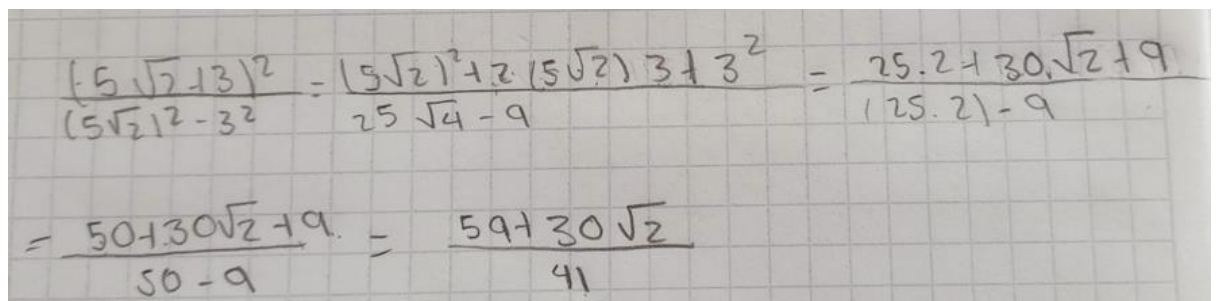 (5√2+3)² / (5√2)² - 3² = (5√2)² + 2.(5√2) 3 + 3² / 25√4 - 9 = 25.2 + 30.√2 + 9 / (25.2) - 9
= 50 + 30√2 + 9 / 50 - 9 = 59 + 30√2 / 41